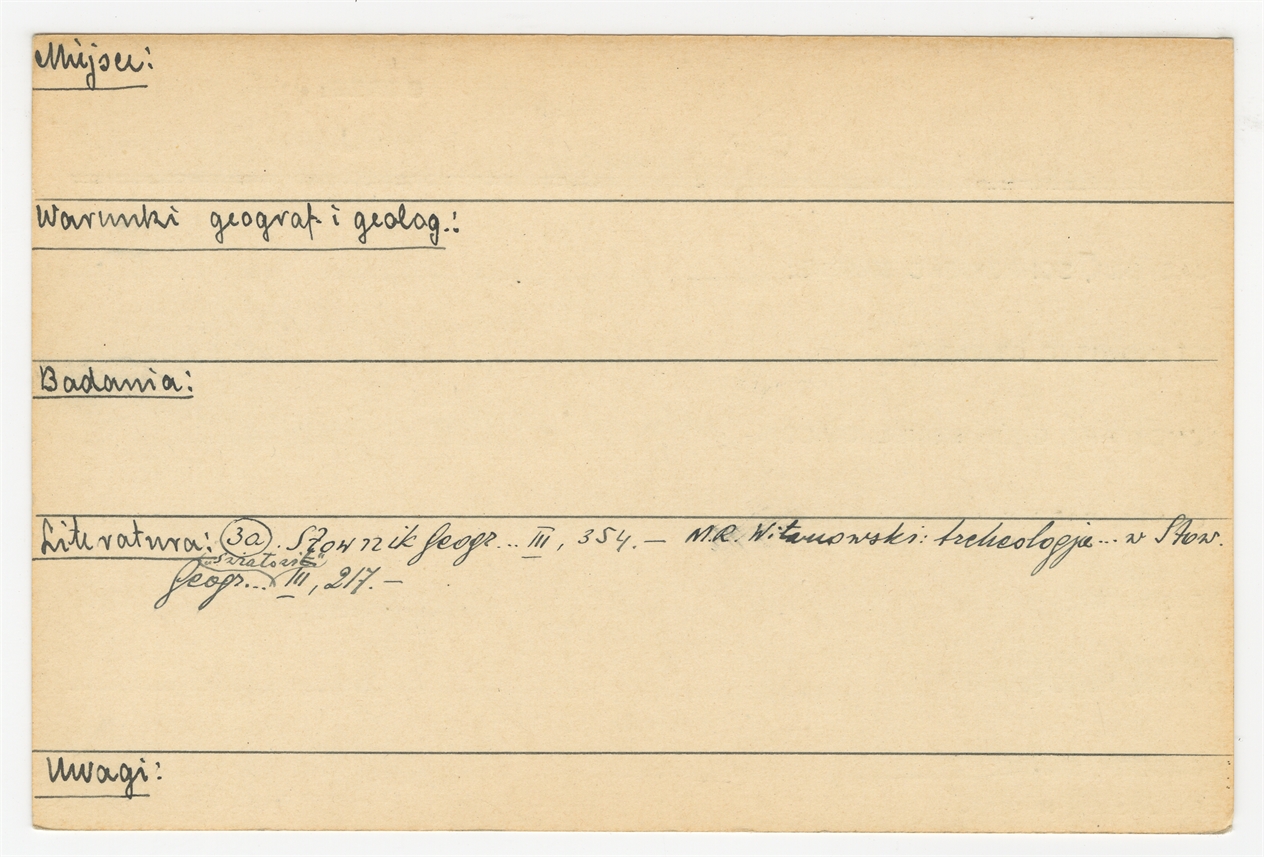 Miejsce:
Warunki geograf. i geolog.:
Badania:
Literatura: (3a). Słownik Geogr... III, 354. — M.R. Witanowski: Archeologja... w Słow.
"Światowit"
Geogr... III, 217. —
Uwagi: